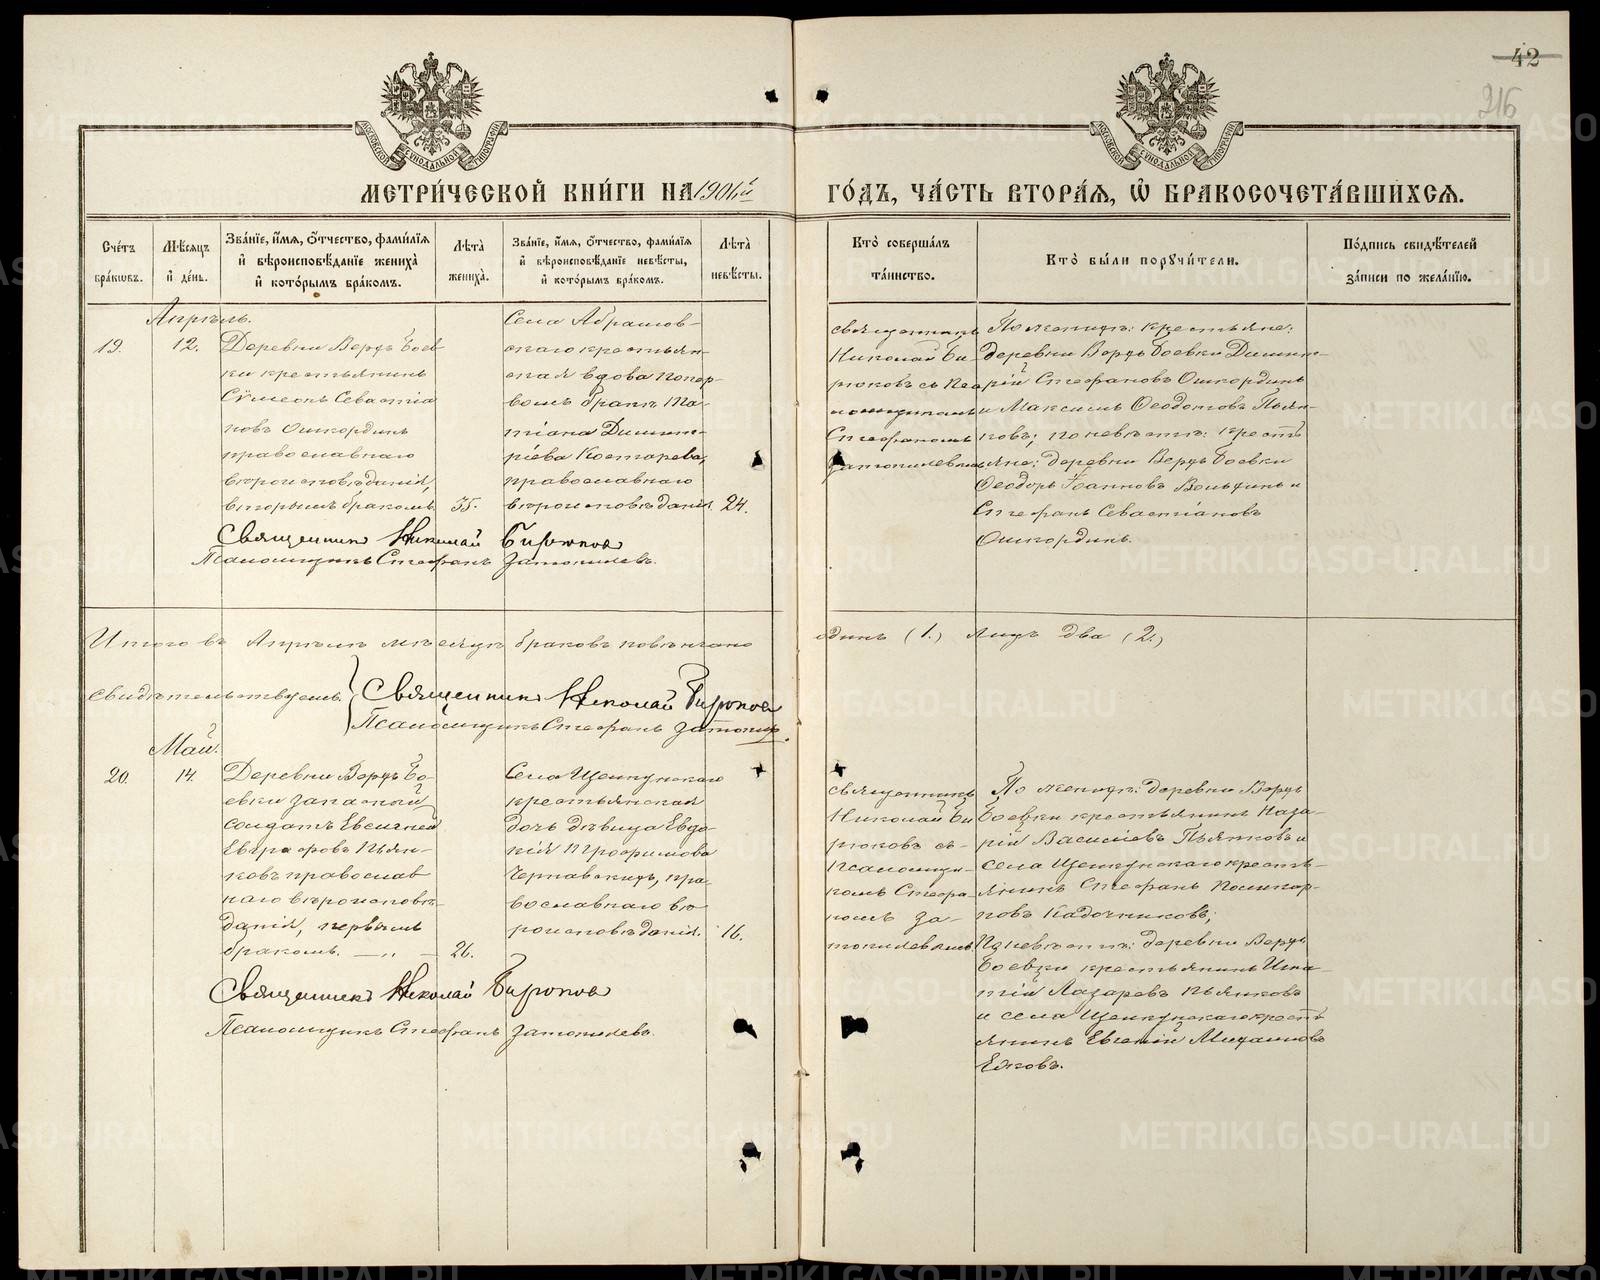 42
216
МЕТРИЧЕСКОЙ КНИГИ НА 1906й ГОДЪ, ЧАСТЬ ВТОРАЯ, Ѡ БРАКОСОЧЕТАВШИХСЯ.
Счетъ браковъ.
Мѣсяцъ и день.
Званіе, имя, отчество, фамилія и вѣроисповѣданіе жениха и которымъ бракомъ.
Лѣта жениха.
Званіе, имя, отчество, фамилія и вѣроисповѣданіе невѣсты, и которымъ бракомъ.
Лѣта невѣсты.
Кто совершалъ таинство.
Кто были поручители.
Подпись свидѣтелей записи по желанію.
Апрѣль.
19.
12.
Деревни Верхъ Боев-
ки крестьянинъ
Сѵмеонъ Севастіа
новъ Ошкординъ
православнаго
вѣроисповѣданія,
вторымъ бракомъ.
35.
Села Абрамов-
скаго крестьян-
ская вдова попер-
вомъ бракѣ Та-
тіана Димит-
ріева Костарева,
православнаго
вѣроисповѣданія.
24.
священникъ
Николай Би-
рюковъ съ Пса
ломщикомъ
Стефаномъ
Затопилевымъ
По женихѣ: крестьяне:
деревни Верхъ Боевки Димит-
рій Стефановъ Ошкординъ
и Максимъ Ѳеодотовъ Пьян-
ковъ; по невѣстѣ: кресть
яне: деревни Верхъ Боевки
Ѳеодоръ Іоанновъ Вольхинъ и
Стефанъ Севастіановъ
Ошкординъ.
Священникъ Николай Бирюковъ
Псаломщикъ Стефанъ Затопилевъ.
Итого въ Апрѣлѣ мѣсяцѣ браковъ повѣнчано одинъ (1.) лицъ два (2.)
Свидѣтельствуемъ: Священникъ Николай Бирюковъ
Псаломщикъ Стефанъ Затопил.
Май.
20.
14.
Деревни Верхъ Бо-
евки запасный
солдатъ Евсигней
Евграфовъ Пьян-
ковъ православ
наго вѣроисповѣ-
данія, первымъ
бракомъ. — „ —
26.
Села Щелкунскаго
крестьянская
дочь дѣвица Евдо-
кія Трофимова
Чернавскихъ, пра-
вославнаго вѣ
роисповѣданія.
16.
священникъ
Николай Би
рюковъ съ
псаломщи-
комъ Стефа-
номъ За-
топилевымъ
По женихѣ: деревни Верхъ
Боевки крестьянинъ Наза-
рій Василіевъ Пьянковъ и
села Щелкунскаго кресть-
янинъ Стефанъ Поликар-
повъ Кадочниковъ;
По невѣстѣ: деревни Верхъ
Боевки крестьянинъ Игна-
тій Лазаревъ Пьянковъ
и села Щелкунскаго кресть
янинъ Евгеній Михаиловъ
Елковъ.
Священникъ Николай Бирюковъ
Псаломщикъ Стефанъ Затопилевъ.
METRIKI.GASO-URAL.RU